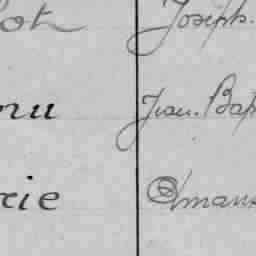 ot Joseph.
nu Jean. Bap
rie Amans